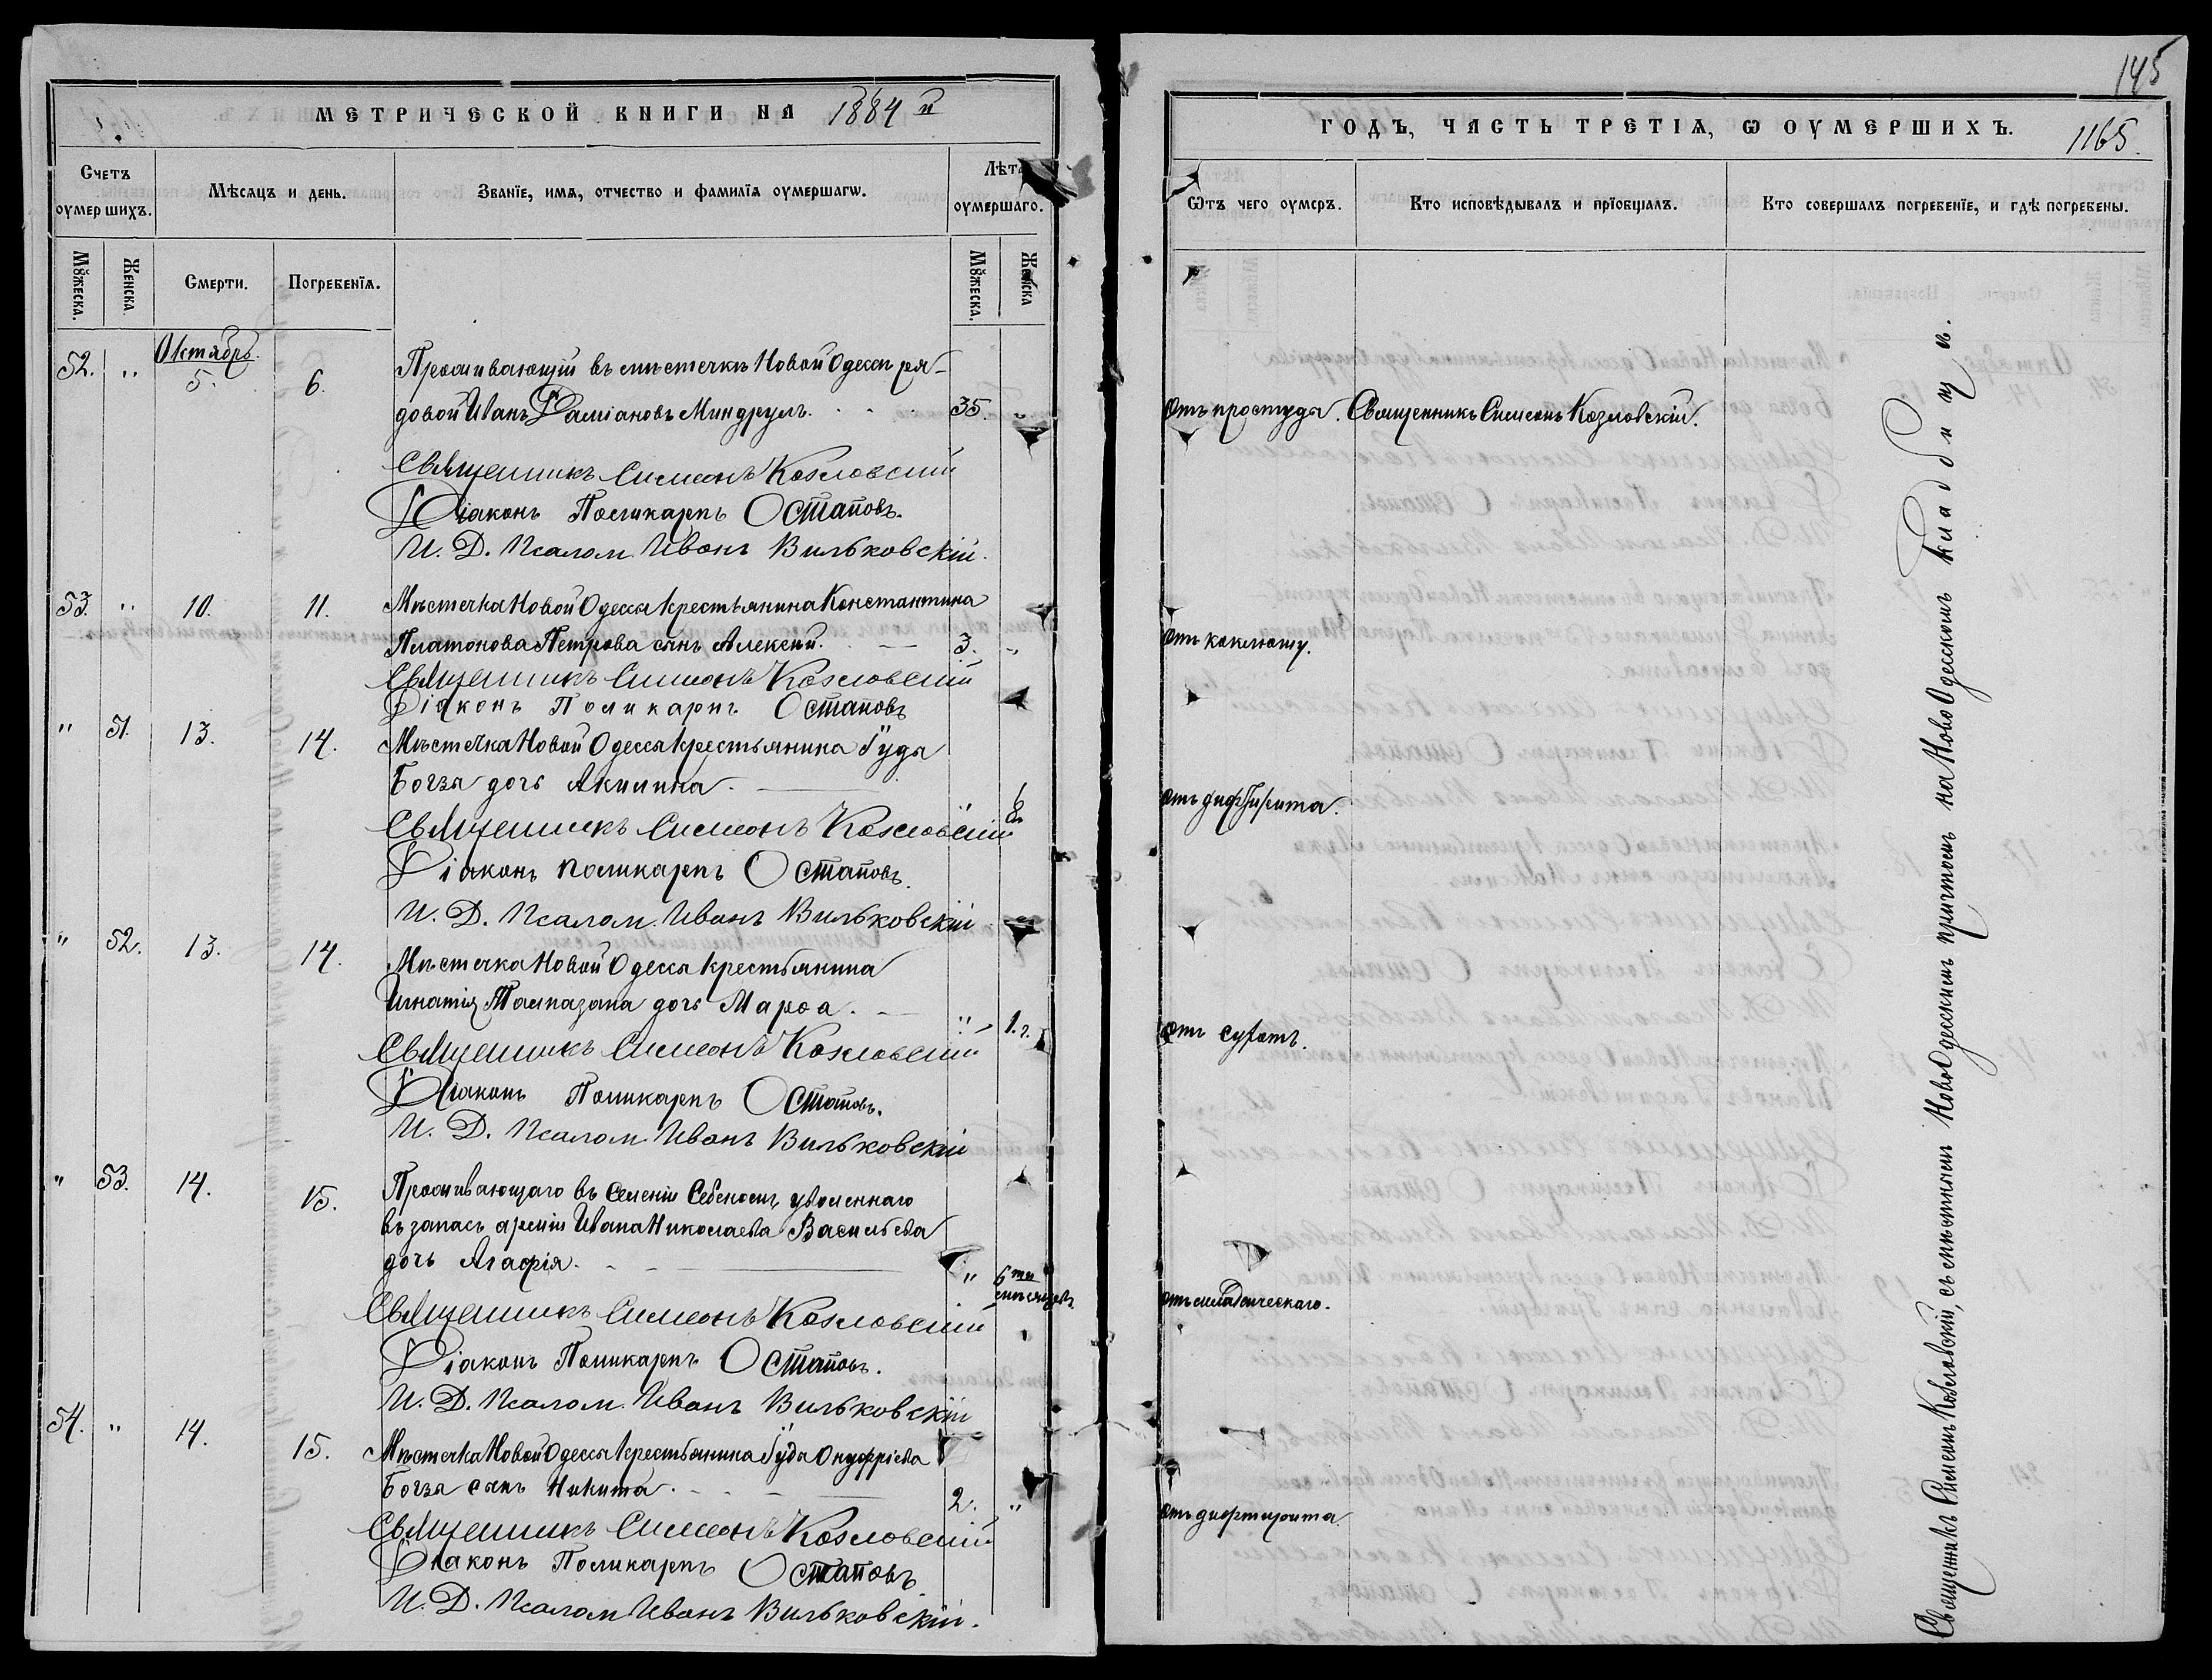 МЕТРИЧЕСКОЙ КНИГИ НА 1884 й
Счетъ оумершихъ.
Мѣсяцъ и день.
Званіе, имя, отчество и фамилія оумершагω.
Лѣта оумершаго.
Мужеска.
Женска.
Смерти.
Погребенія.
Мужеска.
Женска
Октябрь.
52. " 5. 6.
Проживающій въ мѣстечкѣ Новой Одессѣ ря-
довой Иванъ Даміановъ Миндрулъ. 35. "
Священникъ Симеонъ Козловскій
Діаконъ Поликарпъ Остаповъ.
И. Д. Псалом. Иванъ Вильковскій.
53. " 10. 11.
Мѣстечка Новой Одессы крестьянина Константина
Платонова Петрова сынъ Алексѣй. 3. "
Священникъ Симеонъ Козловскій
Діаконъ Поликарпъ Остаповъ
" 51. 13. 14.
Мѣстечка Новой Одессы крестьянина Іуды
Богза дочь Акилина.
Священникъ Симеонъ Козловскій
Діаконъ Поликарпъ Остаповъ.
И. Д. Псалом. Иванъ Вильковскій
" 52. 13. 14.
Мѣстечка Новой Одессы крестьянина
Игнатія дочь Марѳа. " 1. г.
Священникъ Симеонъ Козловскій
Діаконъ Поликарпъ Остаповъ.
И. Д. Псалом. Иванъ Вильковскій
" 53. 14. 15.
Проживающаго въ уволеннаго
въ запасъ арміи Ивана Николаева Васильева
дочь Агафія. " 6 ти
мѣсяцевъ.
Священникъ Симеонъ Козловскій
Діаконъ Поликарпъ Остаповъ.
И. Д. Псалом. Иванъ Вильковскій
54. " 14. 15.
Мѣстечка Новой Одессы крестьянина Іуды Онуфріева
Богза сынъ Никита. 2. "
Священникъ Симеонъ Козловскій
Діаконъ Поликарпъ Остаповъ
И. Д. Псалом Иванъ Вильковскій.
145
ГОДЪ, ЧАСТЬ ТРЕТІЯ, Ѡ ОУМЕРШИХЪ.
1165.
Ѿтъ чего оумеръ.
Кто исповѣдывалъ и пріобщалъ.
Кто совершалъ погребеніе, и гдѣ погребены.
Отъ простуды. Священникъ Симеонъ Козловскій.
Отъ коклюшу.
Отъ дифтирита.
Отъ сухотъ.
Отъ младенческаго.
Отъ дифтирита.
Священникъ Симеонъ Козловскій, съ мѣстнымъ Ново Одесскимъ причтомъ на Ново Одесскомъ кладбищѣ.